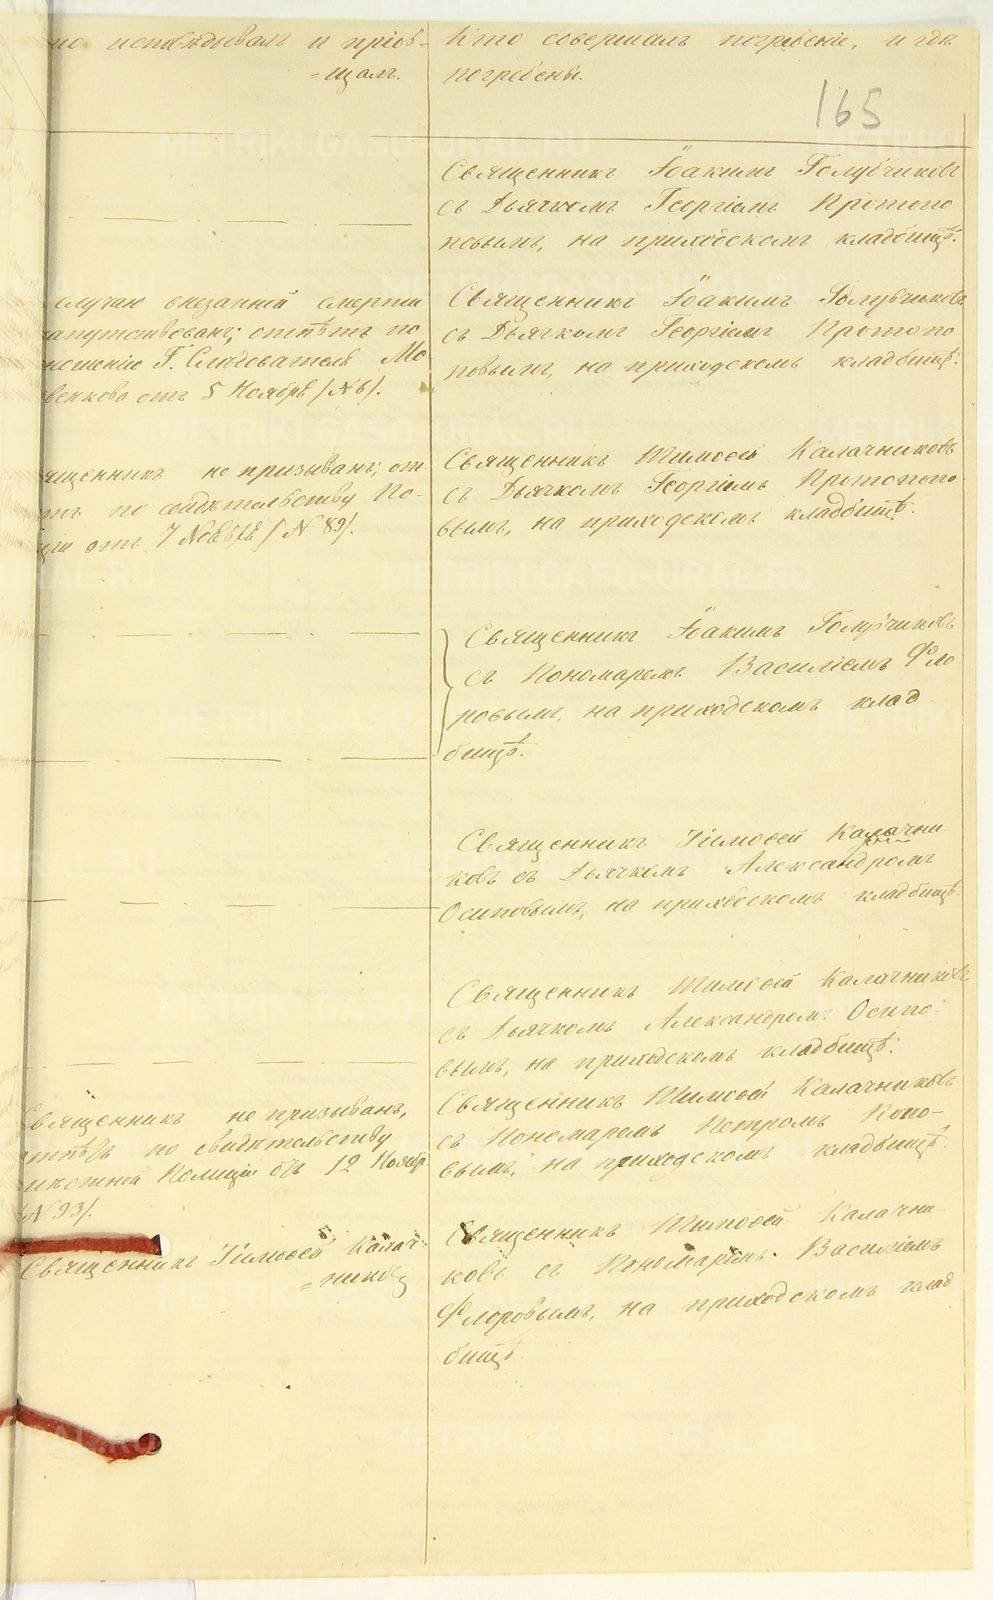 исповѣдывалъ и пріоб-
=щалъ.
Кто совершалъ погребеніе, и гдѣ
погребены.
165
Священникъ Іоакимъ Голубчиковъ
съ Дьячкомъ Георгіемъ Протопо
повымъ, на приходскомъ кладбищѣ.
случаю внезапной смерти
напутствованъ; отпѣтъ по
ношенію Г. Слѣдователя Мо
венкова отъ 5 Ноября /№ 6/.
Священникъ Іоакимъ Голубчиковъ
съ Дьячкомъ Георгіемъ Протопо
повымъ, на приходскомъ кладбищѣ.
ященникъ не призыванъ; от
по свидѣтельству По-
ціи отъ 7 Ноября /№ 89/.
Священникъ Тимоѳей Калачниковъ
съ Дьячкомъ Георгіемъ Протопопо
вымъ, на приходскомъ кладбищѣ.
Священникъ Іоакимъ Голубчиковъ
съ Пономаремъ Василіемъ Фло
ровымъ, на приходскомъ клад
бищѣ.
Священникъ Тимоѳей Калачни
ковъ съ Дьячкомъ Александромъ
Осиповымъ, на приходскомъ кладбищѣ.
Священникъ Тимоѳей Калачниковъ
съ Дьячкомъ Александромъ Осипо-
вымъ, на приходскомъ кладбищѣ.
Священникъ не призыванъ,
отпѣтъ по свидѣтельству
мѣстной Полиціи отъ 12 Ноябр
/№ 93/.
Священникъ Тимоѳей Калачниковъ
съ Пономаремъ Петромъ Попо-
вымъ, на приходскомъ кладбищѣ.
Священникъ Тимоѳей Калач-
=никовъ
Священникъ Тимоѳей Калачни-
ковъ съ Пономаремъ Василіемъ
Флоровымъ, на приходскомъ клад
бищѣ.
METRIKI.GASO-URAL.RU